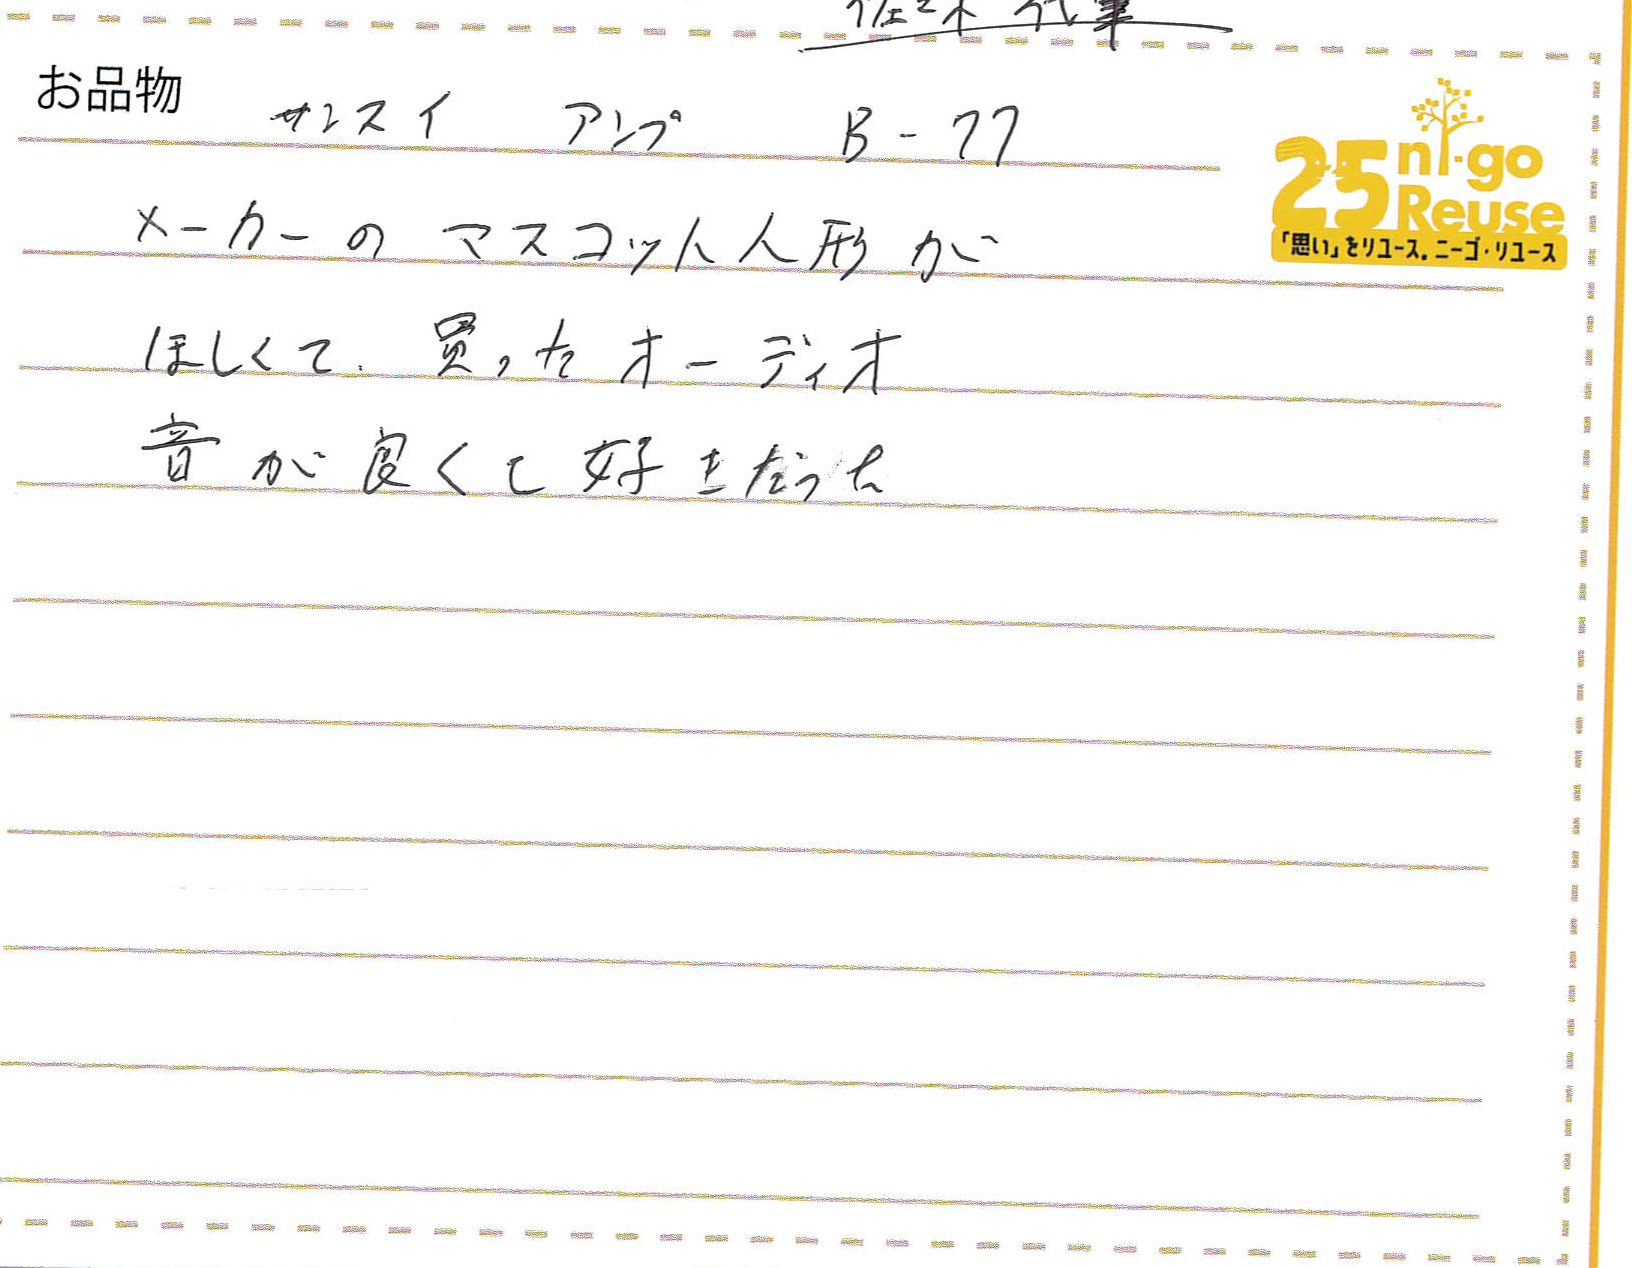 佐々木 代筆
お品物 サンスイ アンプ B-77
25 ni-go Reuse
「思い」をリユース。ニーゴ・リユース
メーカーのマスコット人形が
ほしくて、買ったオーディオ
音が良くて好きだった